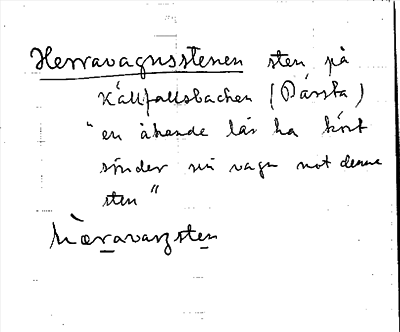 Herravagnsstenen sten på
Källfallsbacken (Dårsta)
"en åkande lär ha kört
sönder sin vagn mot denna
sten"